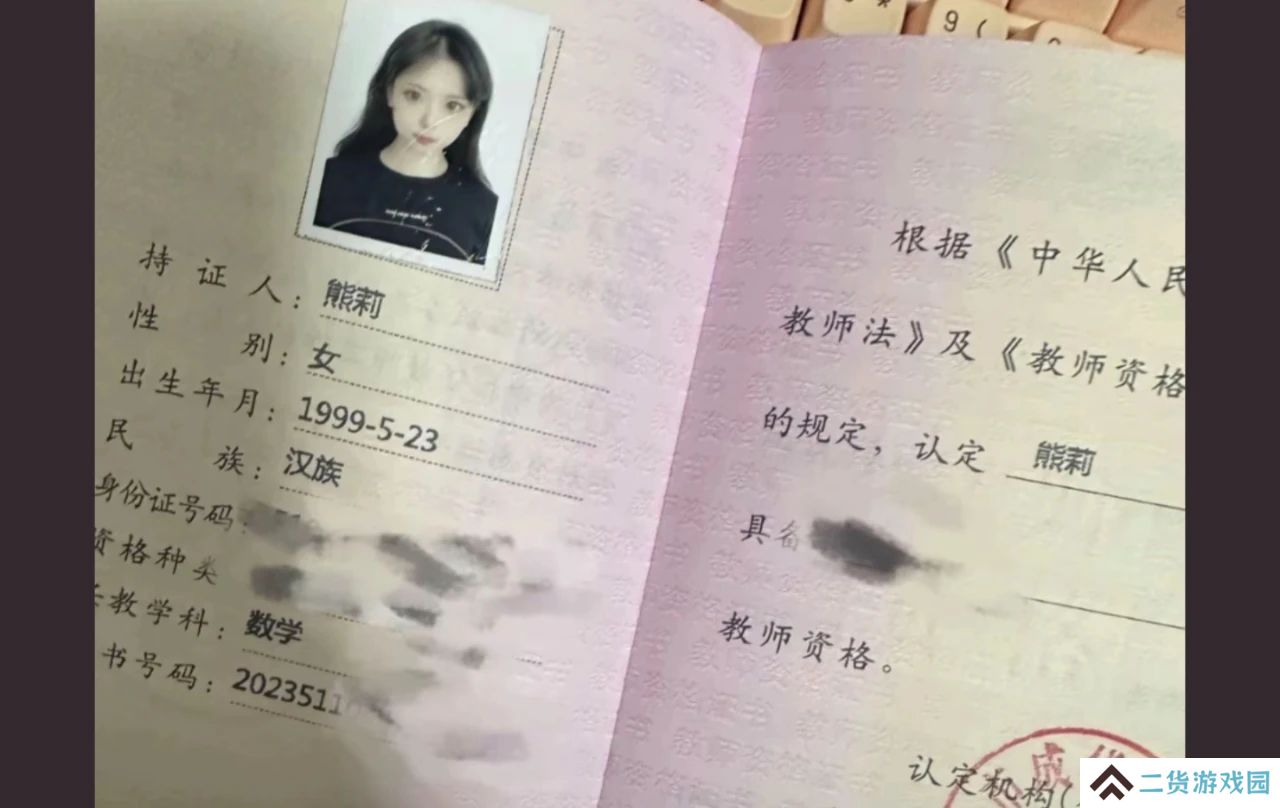 9 (
持证人：熊莉
性别：女
出生年月：1999-5-23
民族：汉族
身份证号码：
资格种类
教学科：数学
书号码：2023511
根据《中华人民
教师法》及《教师资格
的规定，认定 熊莉
具备
教师资格。
认定机构(
成
二货游戏园